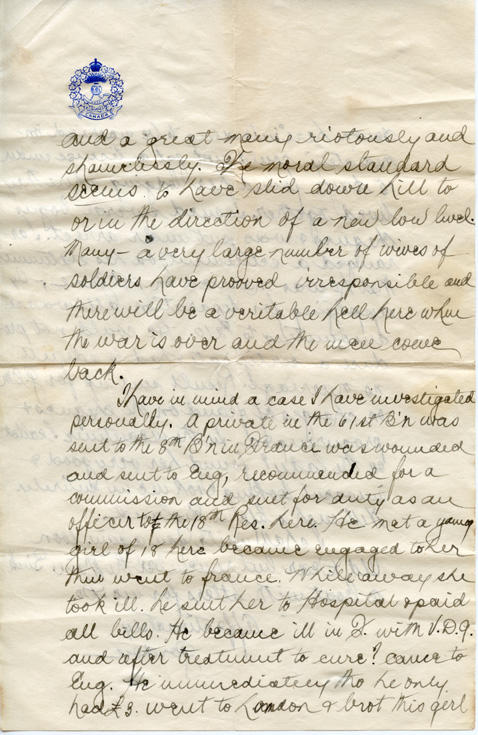 CANADA
and a great many riotously and
shamelessly. The moral standard
seems to have slid down hill to
or in the direction of a new low level.
Many - a very large number of wives of
soldiers have prooved irresponsible and
there will be a veritable hell here when
the war is over and the men come
back.
I have in mind a case I have investigated
personally. A private in the 61st B'n was
sent to the 8th B'n in France was wounded
and sent to Eng, recommended for a
commission and sent for duty as an
officer to the 18th Res. here. He met a young
girl of 18 here became engaged to her
then went to france. While away she
took ill. he sent her to Hospital & paid
all bills. He became ill in F. with V.D.G.
and after treatment to cure? came to
Eng. He immediately tho he only
had £3. went to London & brot this girl